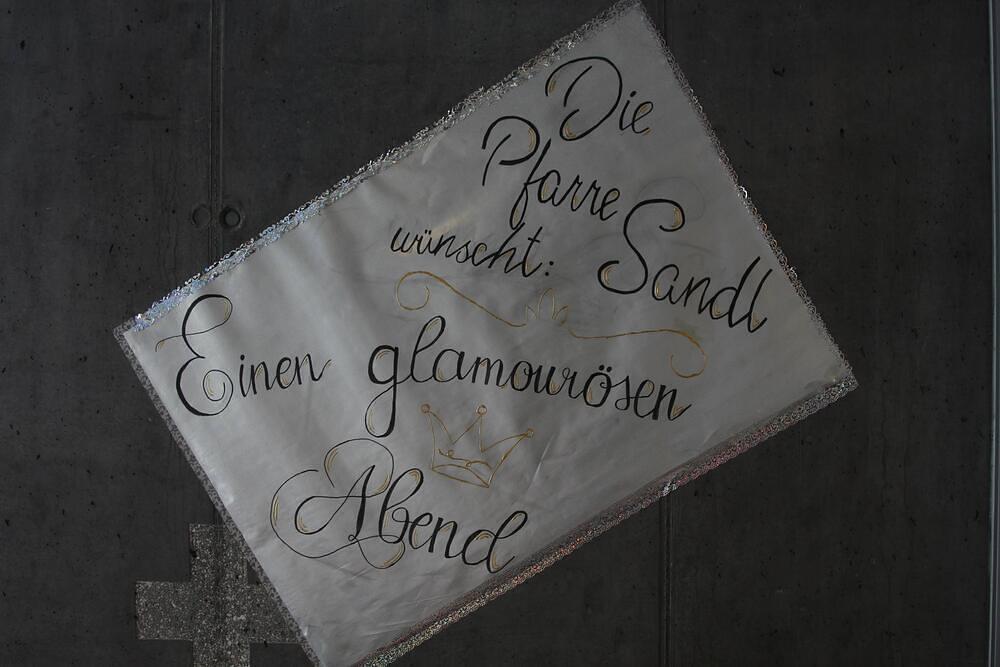 Die
Pfarre Sandl
wünscht:
Einen glamourösen
Abend